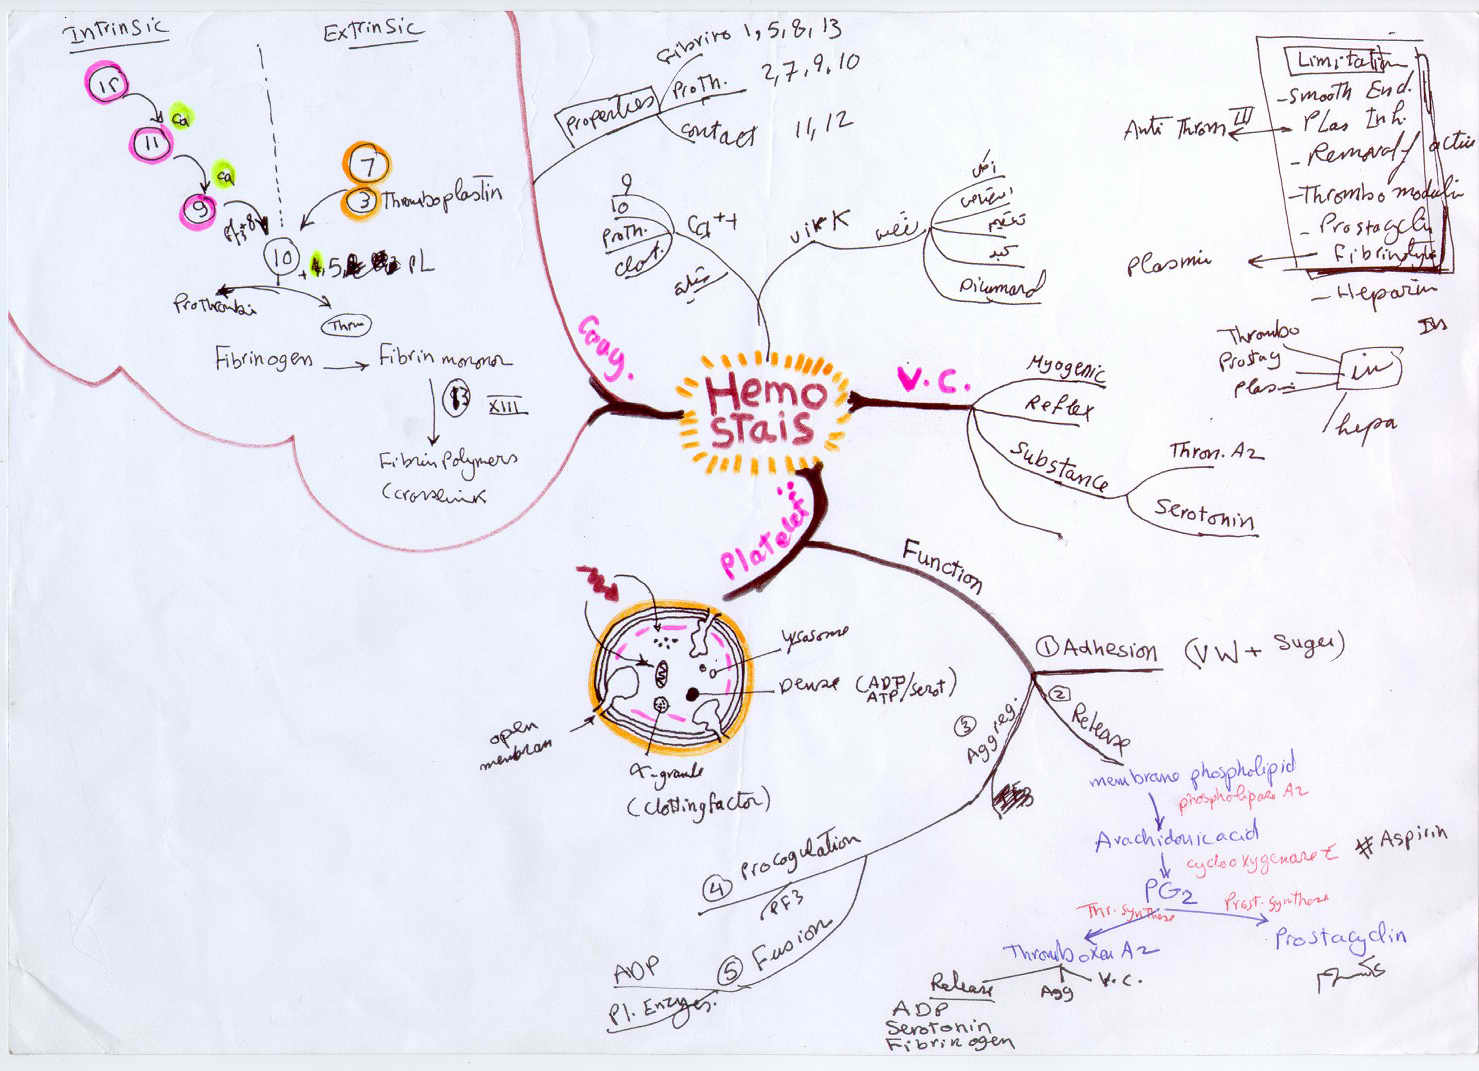 Intrinsic
Extrinsic
11
Ca
Ca
9
7
3
Thromboplastin
10
5,
PL
Prothrombi
Throm
Fibrinogen
Fibrin monomor
13
XIII
Fibrin Polymers
(crosslink
Properties
Fibrino 1, 5, 8, 13
Proth. 2, 7, 9, 10
contact 11, 12
9
10
Proth.
Clot.
Ca++
vit K
كبد
Dicumarol
Coag.
Hemo
stais
V.C.
Myogenic
Reflex
Substance
Throm. A2
Serotonin
Limitation
- Smooth End.
- Plas Inh.
- Removal of activ
- Thrombo modulin
- Prostacyclin
- Fibrinolytic
- Heparin
Anti Throm III
Plasmin
Thrombo
Prostag
Plas
in
hepa
Platelet
Function
① Adhesion (VW + Suger)
② Release
③ Aggreg.
④ Procagulation
PF3
⑤ Fusion
ADP
Pl. Enzymes.
lysosome
Dense (ADP
ATP/serot)
open
membran
α-granule
(clotting factor)
membrane phospholipid
phospholipase A2
Arachidonic acid
cyclooxygenase
# Aspirin
PG2
Thr. synthase
Prost. synthase
Thromboxan A2
Prostacyclin
Release
Agg
V.C.
ADP
Serotonin
Fibrinogen